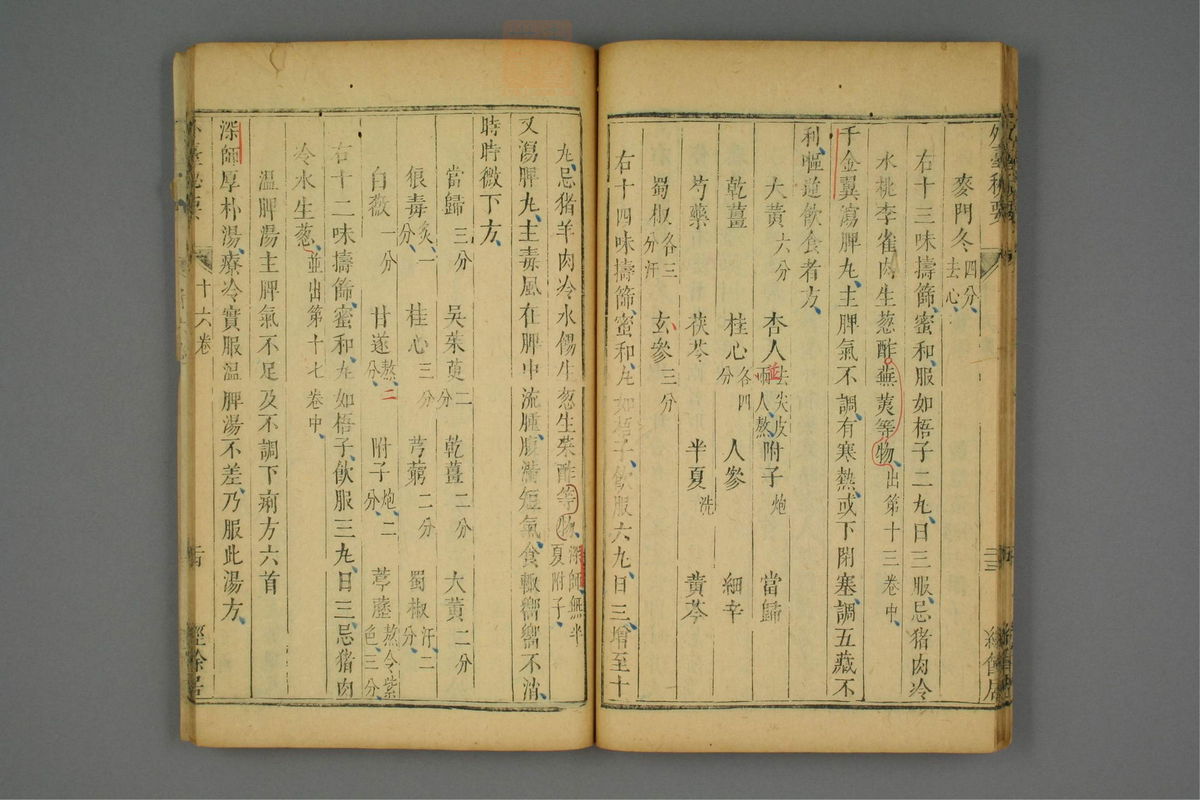 麥門冬四分去心
右十三味擣篩蜜和服如梧子二丸日三服忌猪肉冷
水桃李雀肉生葱酢蕪荑等物出第十三卷中
千金翼瀉脾丸主脾氣不調有寒熱或下閉塞調五藏不
利嘔逆飲食者方
大黃六分 杏人去尖皮兩人熬 附子炮 當歸
乾薑 桂心各四分 人參 細辛
芍藥 茯苓 半夏洗 黃芩
蜀椒各三分汗 玄參三分
右十四味擣篩蜜和丸如梧子飲服六丸日三增至十
丸忌猪羊肉冷水餳生葱生菜酢等物深師無半夏附子
又瀉脾丸主毒風在脾中流腫腹滿短氣食輙嚮嚮不消
時時微下方
當歸三分 吳茱萸二分 乾薑二分 大黃二分
狼毒炙一分 桂心三分 芎藭二分 蜀椒汗二分
白薇一分 甘遂熬二分 附子炮二分 葶藶熬令紫色三分
右十二味擣篩蜜和丸如梧子飲服三丸日三忌猪肉
冷水生葱並出第十七卷中
溫脾湯主脾氣不足及不調下痢方六首
深師厚朴湯療冷實服溫脾湯不差乃服此湯方
外臺秘要 十六卷 經餘居